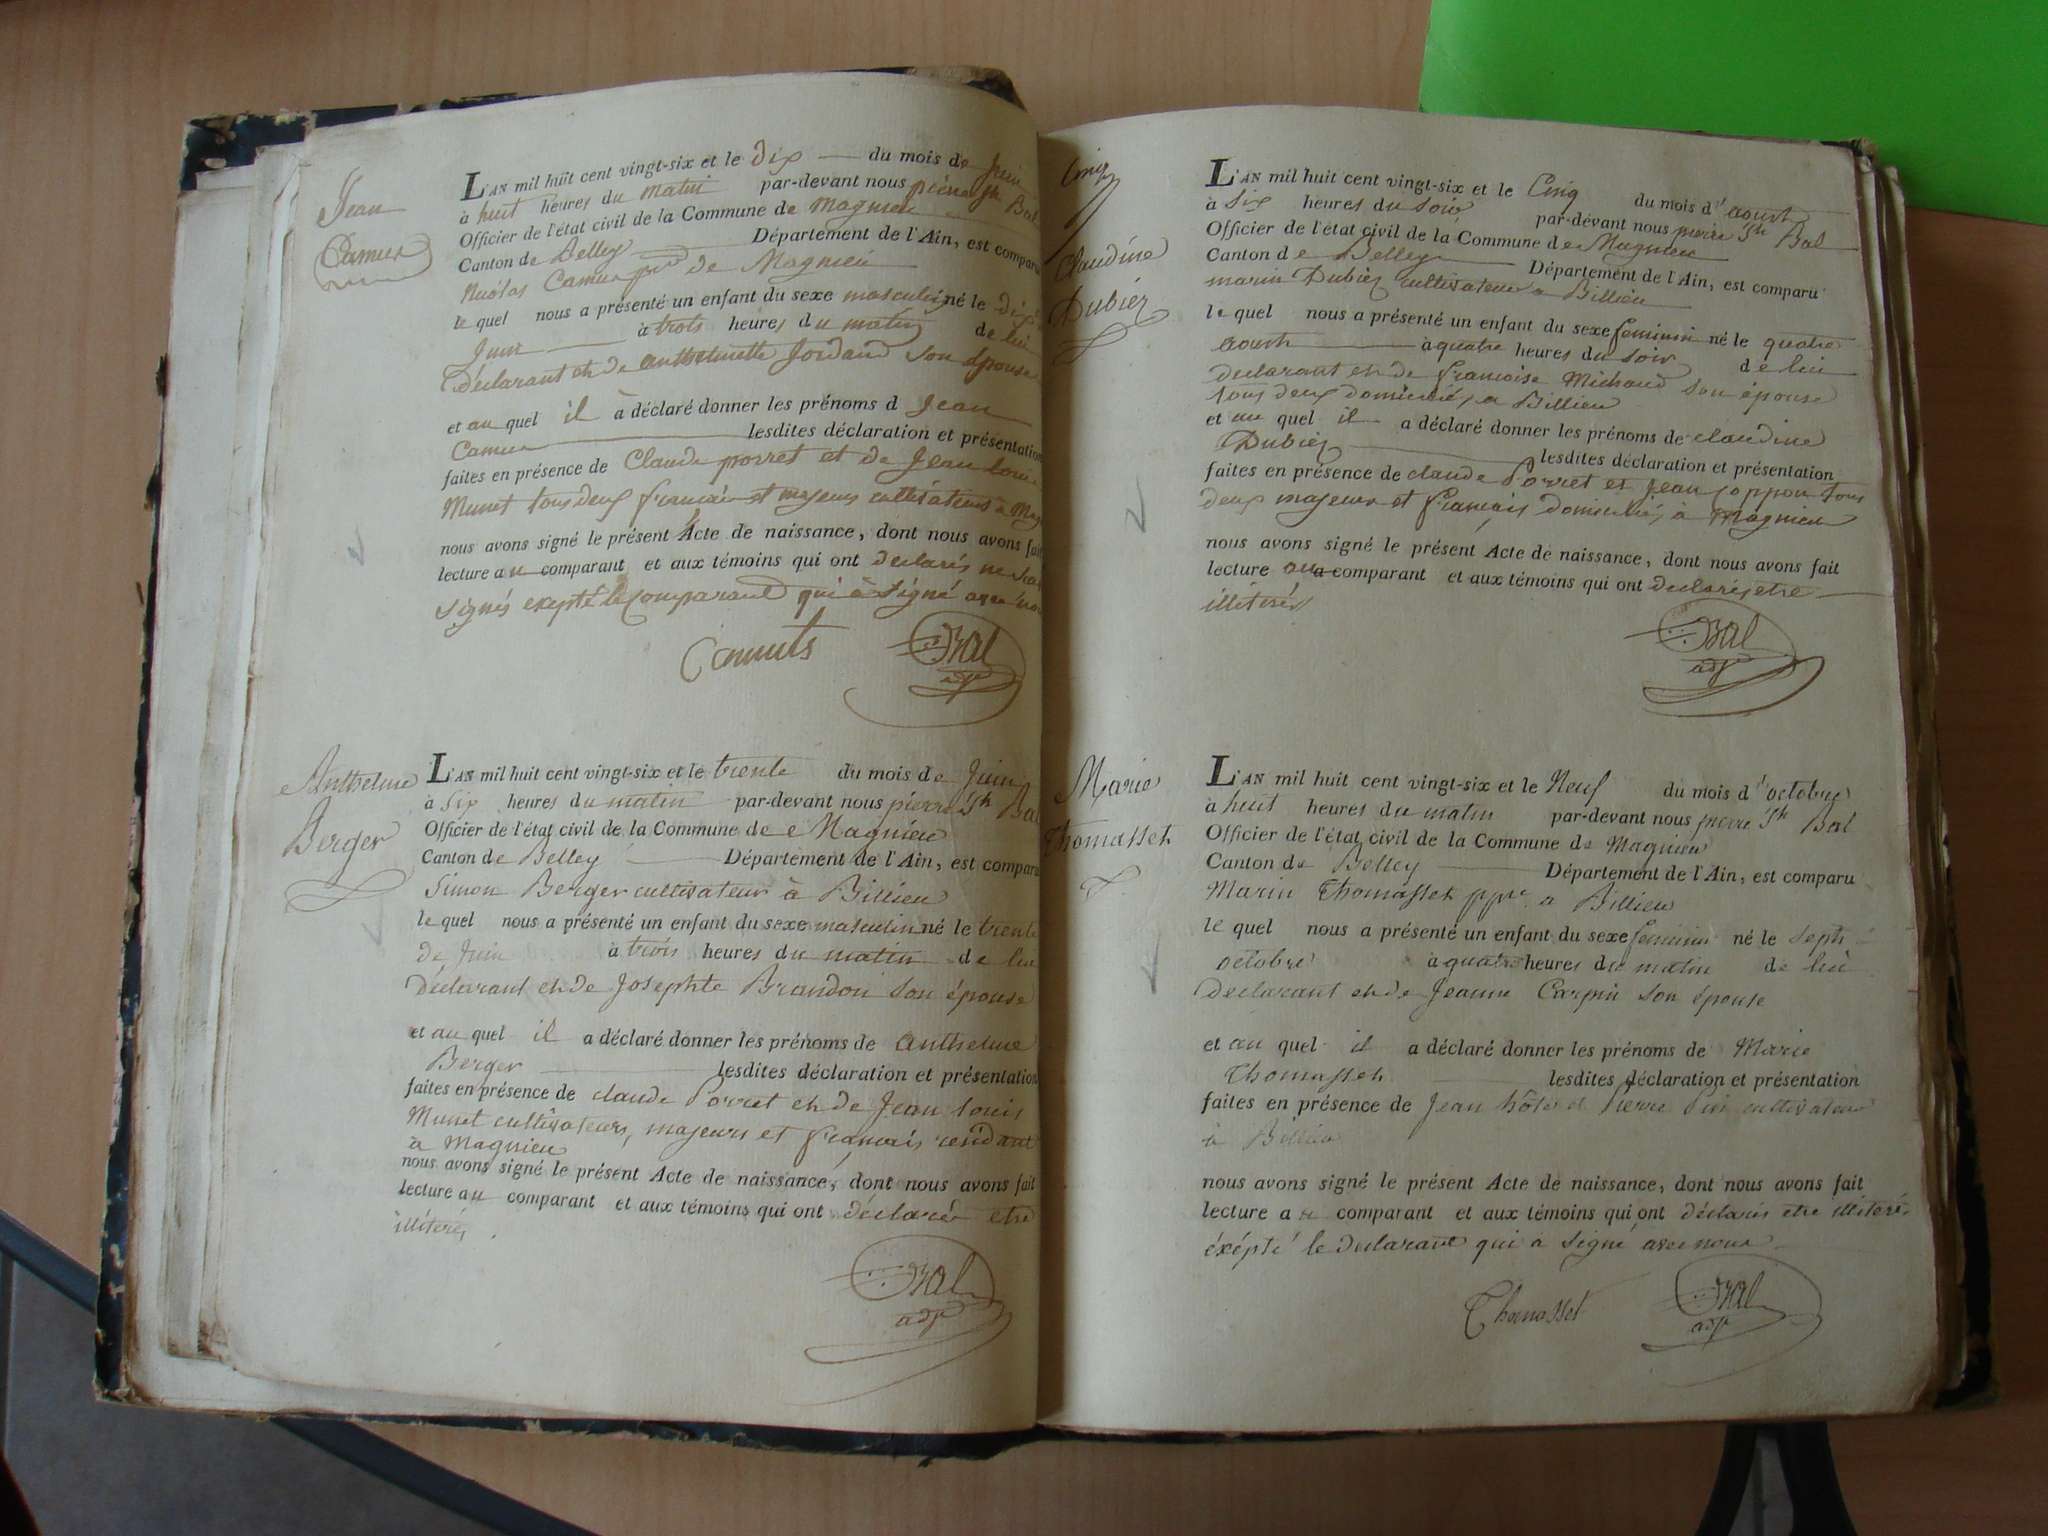 Jean
Camus
L'AN mil huit cent vingt-six et le dix du mois de Juin
à huit heures du matin par-devant nous pierre Jh Bal
Officier de l'état civil de la Commune de Magnieu
Canton de Belley Département de l'Ain, est comparu
Nicolas Camus pre de Magnieu
le quel nous a présenté un enfant du sexe masculin né le dix
Juin à trois heures du matin de lui
Déclarant et de anthelmette Jordand son épouse
et au quel il à déclaré donner les prénoms d Jean
Camus lesdites déclaration et présentation
faites en présence de Claude porret et de Jean loui
Munet tous deux français et majeurs cultivateurs à Mag
nous avons signé le présent Acte de naissance, dont nous avons fait
lecture au comparant et aux témoins qui ont déclarés ne
signés exepté le comparant qui à signé avec nou
Camuts Bal
adjt
Anthelme
Berger
L'AN mil huit cent vingt-six et le trente du mois de Juin
à six heures du matin par-devant nous pierre Jh Bal
Officier de l'état civil de la Commune de Magnieu
Canton de Belley Département de l'Ain, est comparu
Simon Berger cultivateur à Billieu
le quel nous a présenté un enfant du sexe masculin né le trente
de Juin à trois heures du matin de lui
Déclarant et de Josephte Brandon son épouse
et au quel il a déclaré donner les prénoms de anthelme
Berger lesdites déclaration et présentation
faites en présence de claude Porret et de Jean louis
Munet cultivateurs, majeurs et français résidant
à Magnieu
nous avons signé le présent Acte de naissance, dont nous avons fait
lecture au comparant et aux témoins qui ont déclarés etre
illiterés
Bal
adjt
Cinq
Claudine
Dubiez
L'AN mil huit cent vingt-six et le Cinq du mois d'aoust
à six heures du soir par-devant nous pierre Jh Bal
Officier de l'état civil de la Commune de Magnieu
Canton de Belley Département de l'Ain, est comparu
marin Dubiez cultivateur a Billieu
le quel nous a présenté un enfant du sexe feminin né le quatre
aoust à quatre heures du soir de lui
déclarant et de francoise Michaud son épouse
tous deux domiciliés a Billieu
et au quel il a déclaré donner les prénoms de claudine
Dubiez lesdites déclaration et présentation
faites en présence de claude Porret et Jean joppon tous
deux majeurs et français domiciliés à Magnieu
nous avons signé le présent Acte de naissance, dont nous avons fait
lecture au comparant et aux témoins qui ont declarés etre
illiterés
Bal
adjt
Marie
Thomasset
L'AN mil huit cent vingt-six et le Neuf du mois d'octobre
à huit heures du matin par-devant nous pierre Jh Bal
Officier de l'état civil de la Commune de Magnieu
Canton de Belley Département de l'Ain, est comparu
Marin Thomasset ppre a Billieu
le quel nous a présenté un enfant du sexe feminin né le sept
octobre à quatre heures du matin de lui
Déclarant et de Jeanne Carpin son épouse
et au quel il a déclaré donner les prénoms de Marie
Thomasset lesdites déclaration et présentation
faites en présence de Jean hôte et Pierre cultivateur
à Billieu
nous avons signé le présent Acte de naissance, dont nous avons fait
lecture au comparant et aux témoins qui ont déclarés etre illiterés
éxépté le declarant qui à signé avec nous
Thomasset Bal
adjt